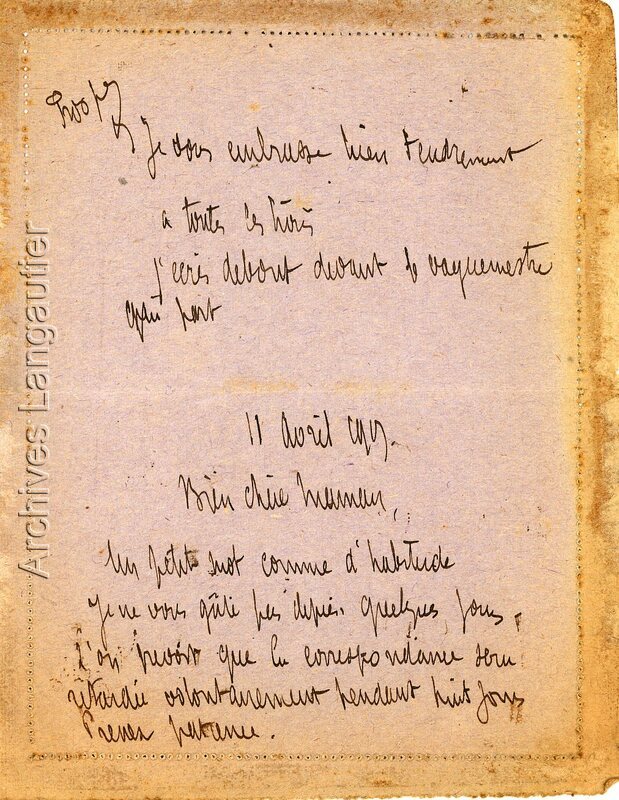 Je vous embrasse bien tendrement
a toutes les trois
j'ecris debout devant le vaguemestre
qui part
11 Avril 1915.
Bien chère Maman,
Un petit mot comme d'habitude
Je ne vous gâte pas depuis quelques jours,
L'on prevoit que la correspondance sera
retardée volontairement pendant huit jours
Prenez patience.
Archives Langauffer